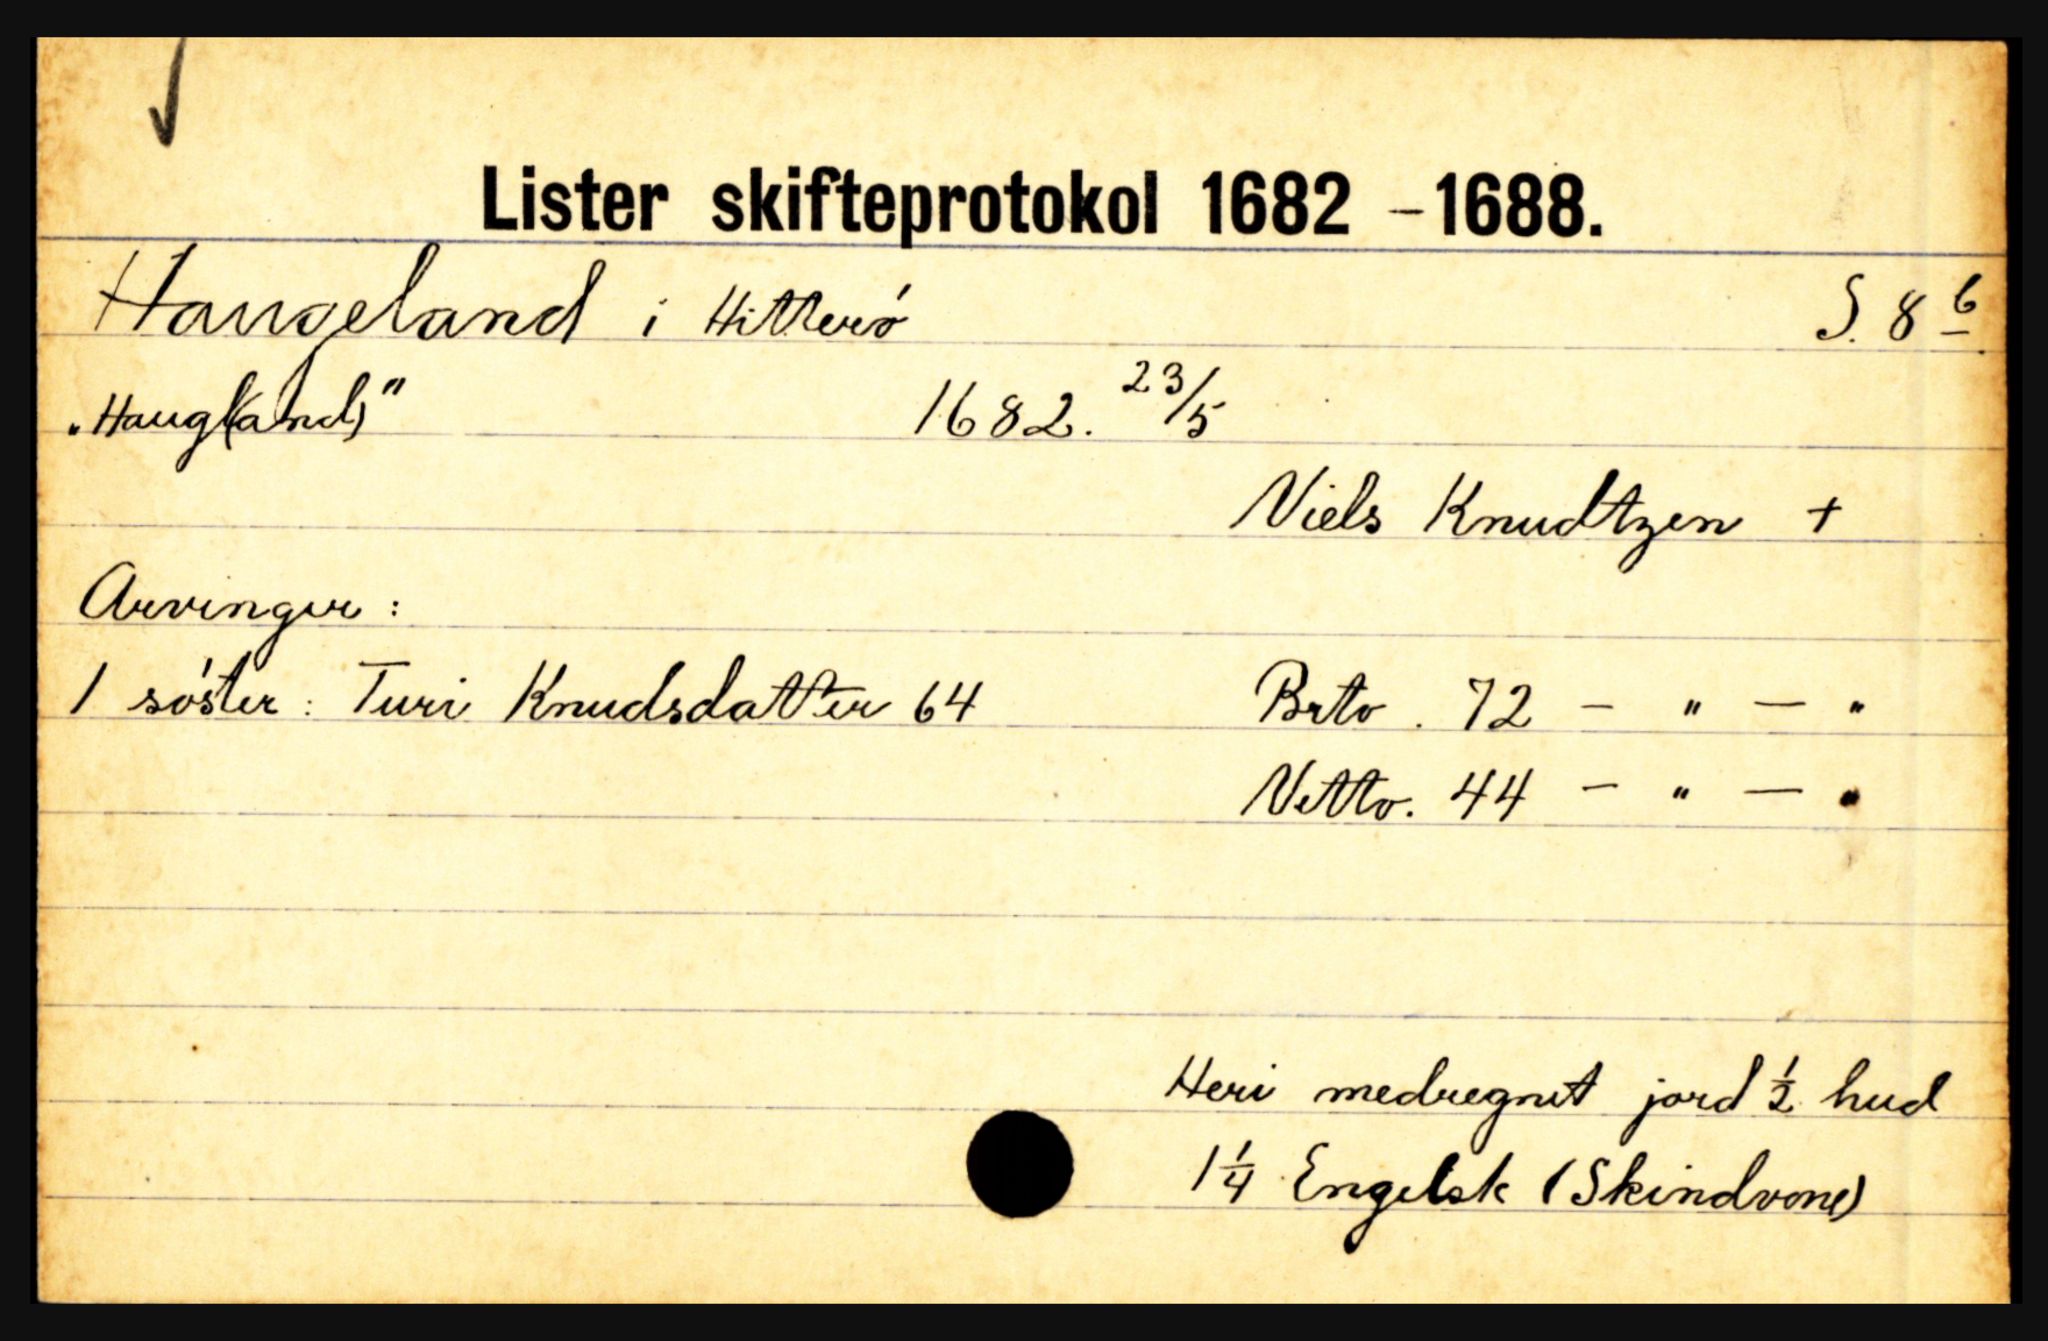 Lister skifteprotokol 1682 - 1688.
Haugeland i Hitterö S. 8 b
"Haugl(and)" 1682. 23/5
Niels Knudtzen +
Arvinger :
1 söster : Turi Knudsdatter 64 Brto. 72 - " - "
Netto. 44 - " - "
Heri medregnet jord 1/2 hud
1 1/4 Engelsk (Skindvone)